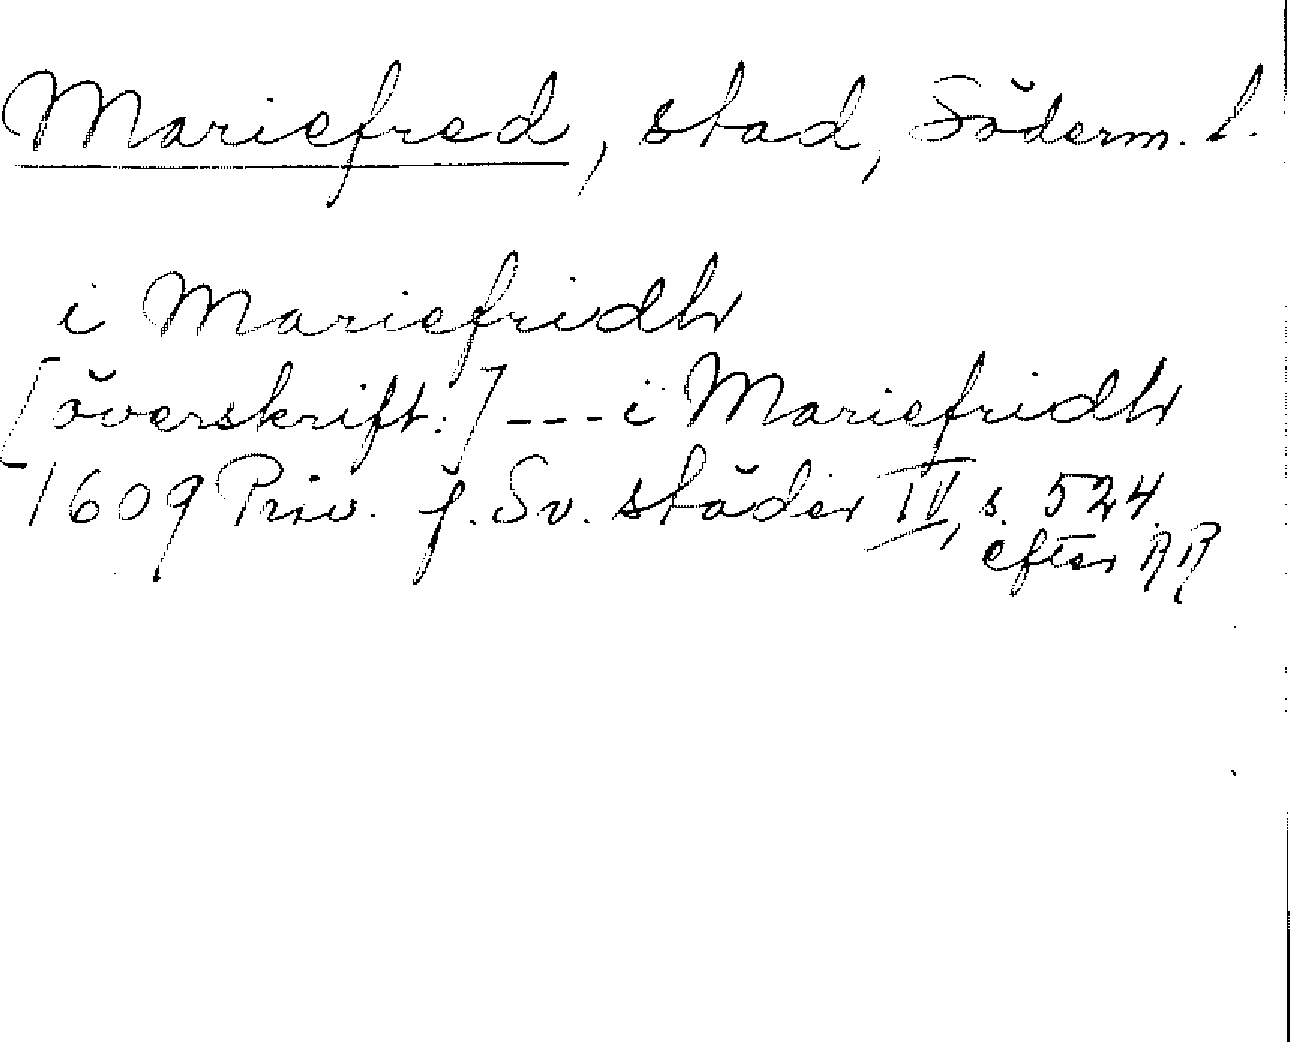 Mariefred, stad, Söderm. l.
i Mariefridh
[överskrift:] --- i Mariefridh
1609 Priv. f. Sv. städer IV, s. 524
efter RR